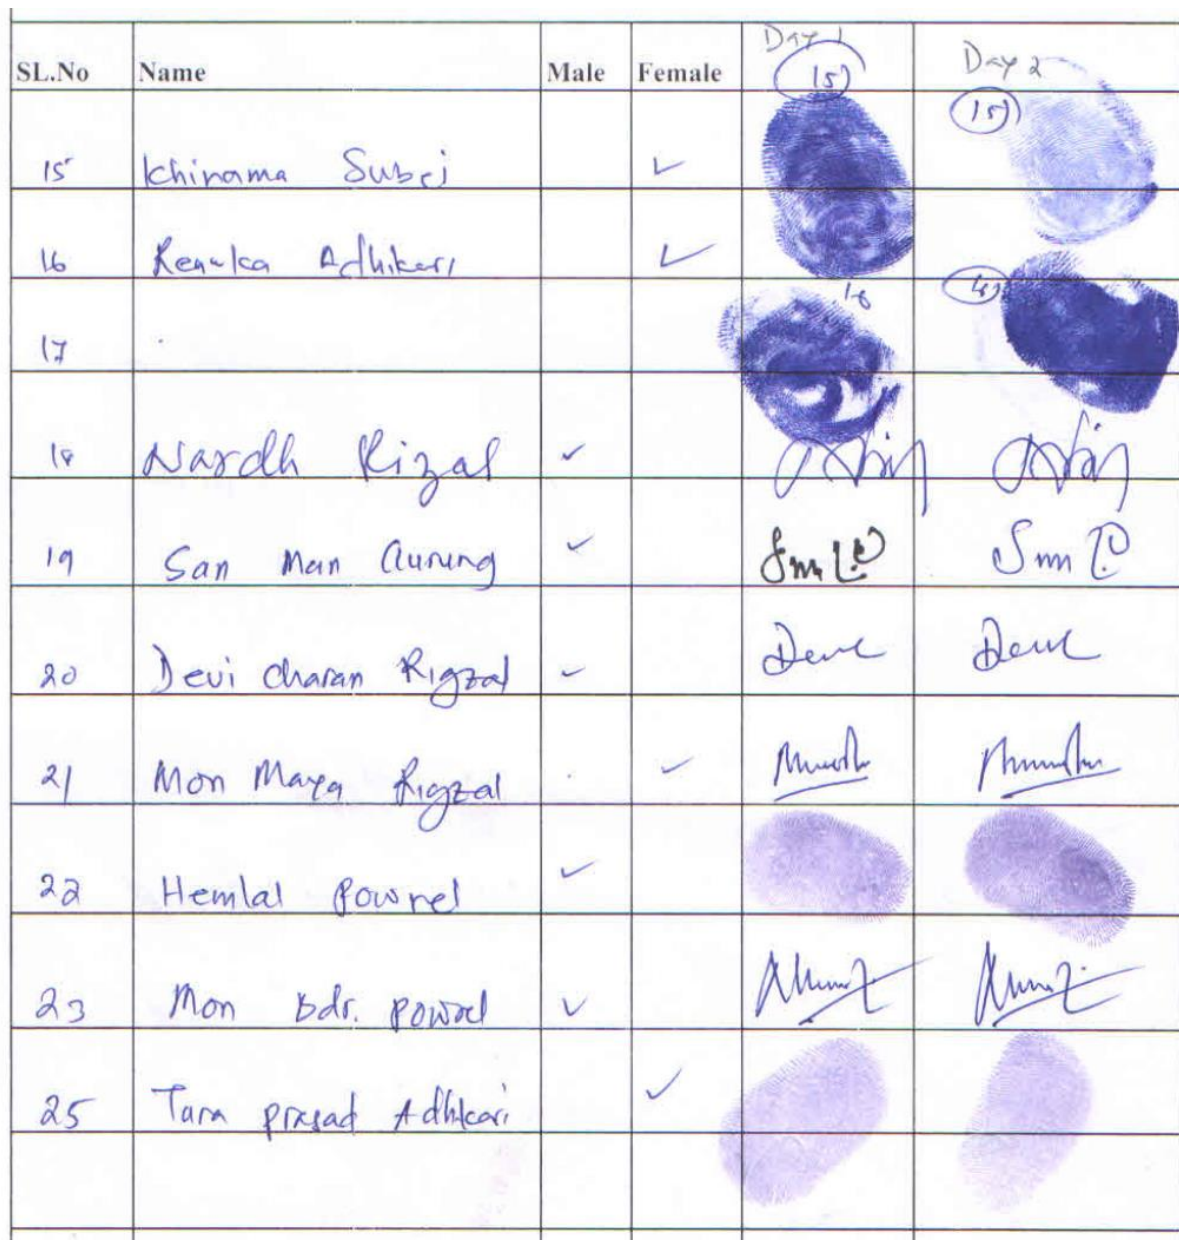 Day 1
Day 2
SL.No Name Male Female 15
15
15 Khinama Subej ✓
16 Renuka Adhikari ✓
16
17
18 Nardh Rizal ✓
19 San Man Gurung ✓
20 Devi charan Rigzal ✓
21 Mon Maya Rigzal ✓
22 Hemlal Pownel ✓
23 Mon Bdr. Powrel ✓
25 Tara prasad Adhikari ✓